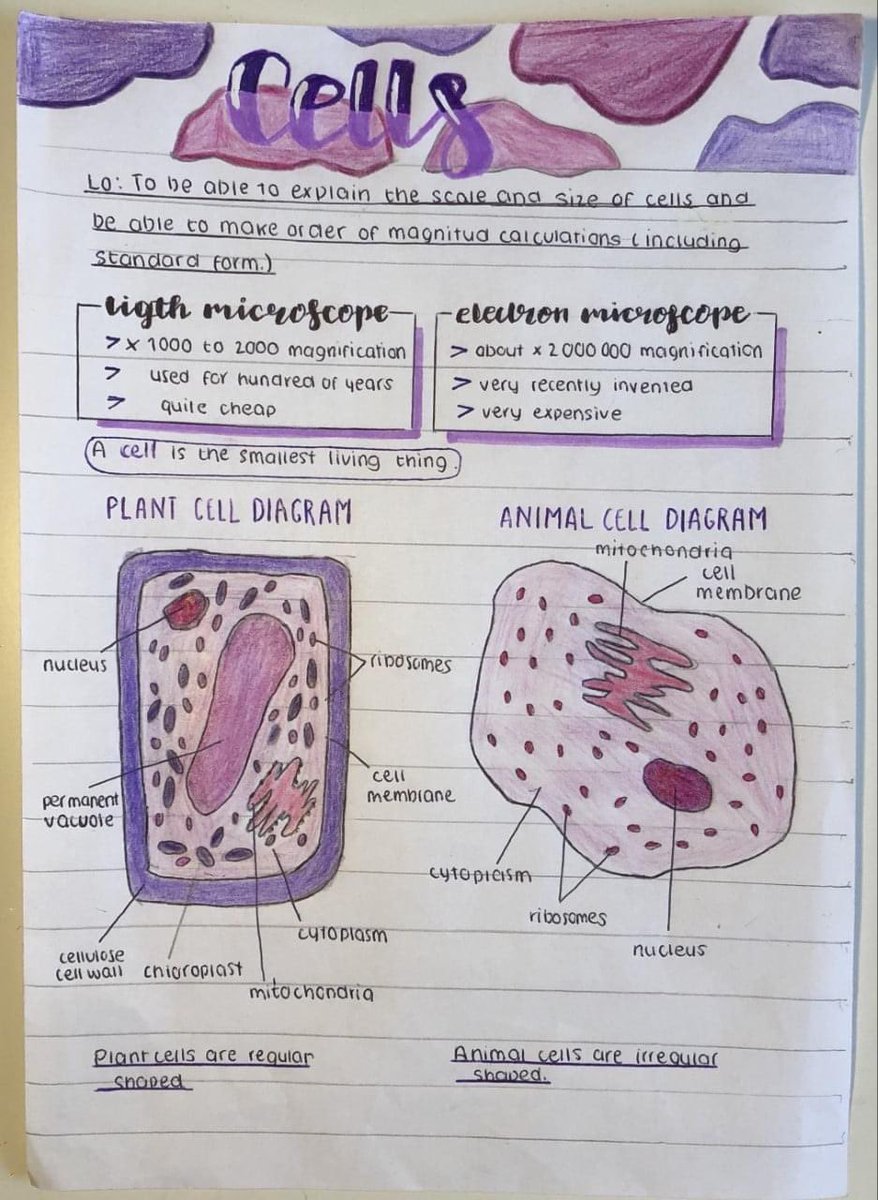 Cells
LO: To be able to explain the scale and size of cells and
be able to make order of magnitud calculations (including
standard form.)
ligth microscope
> x 1000 to 2000 magnification
> used for hundred of years
> quite cheap
electron microscope
> about x 2 000 000 magnification
> very recently invented
> very expensive
A cell is the smallest living thing.
PLANT CELL DIAGRAM
nucleus
ribosomes
permanent
vacuole
cell
membrane
cellulose
cell wall
chloroplast
cytoplasm
mitochondria
ANIMAL CELL DIAGRAM
mitochondria
cell
membrane
cytoplasm
ribosomes
nucleus
Plant cells are regular
shaped
Animal cells are irregular
shaped.